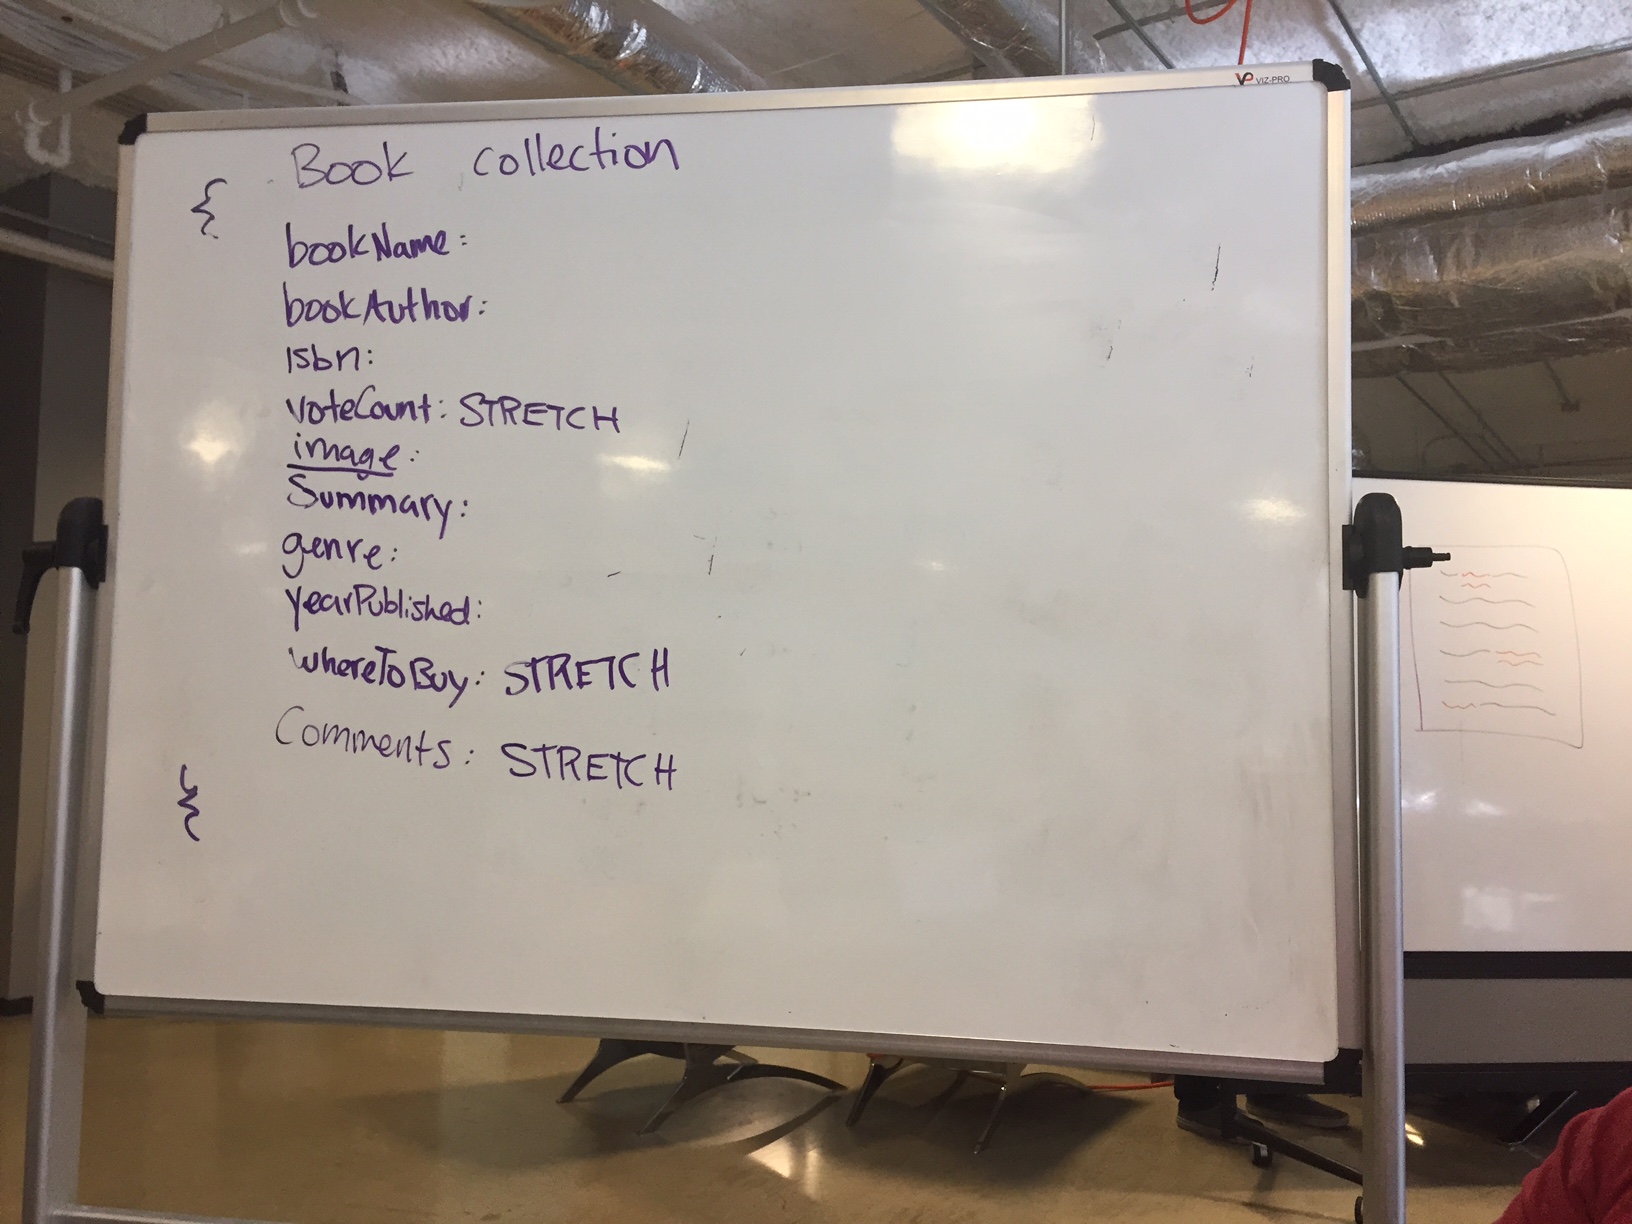 VP VIZ-PRO
Book collection
{
bookName:
bookAuthor:
isbn:
voteCount: STRETCH
image:
Summary:
genre:
yearPublished:
whereToBuy: STRETCH
Comments: STRETCH
}